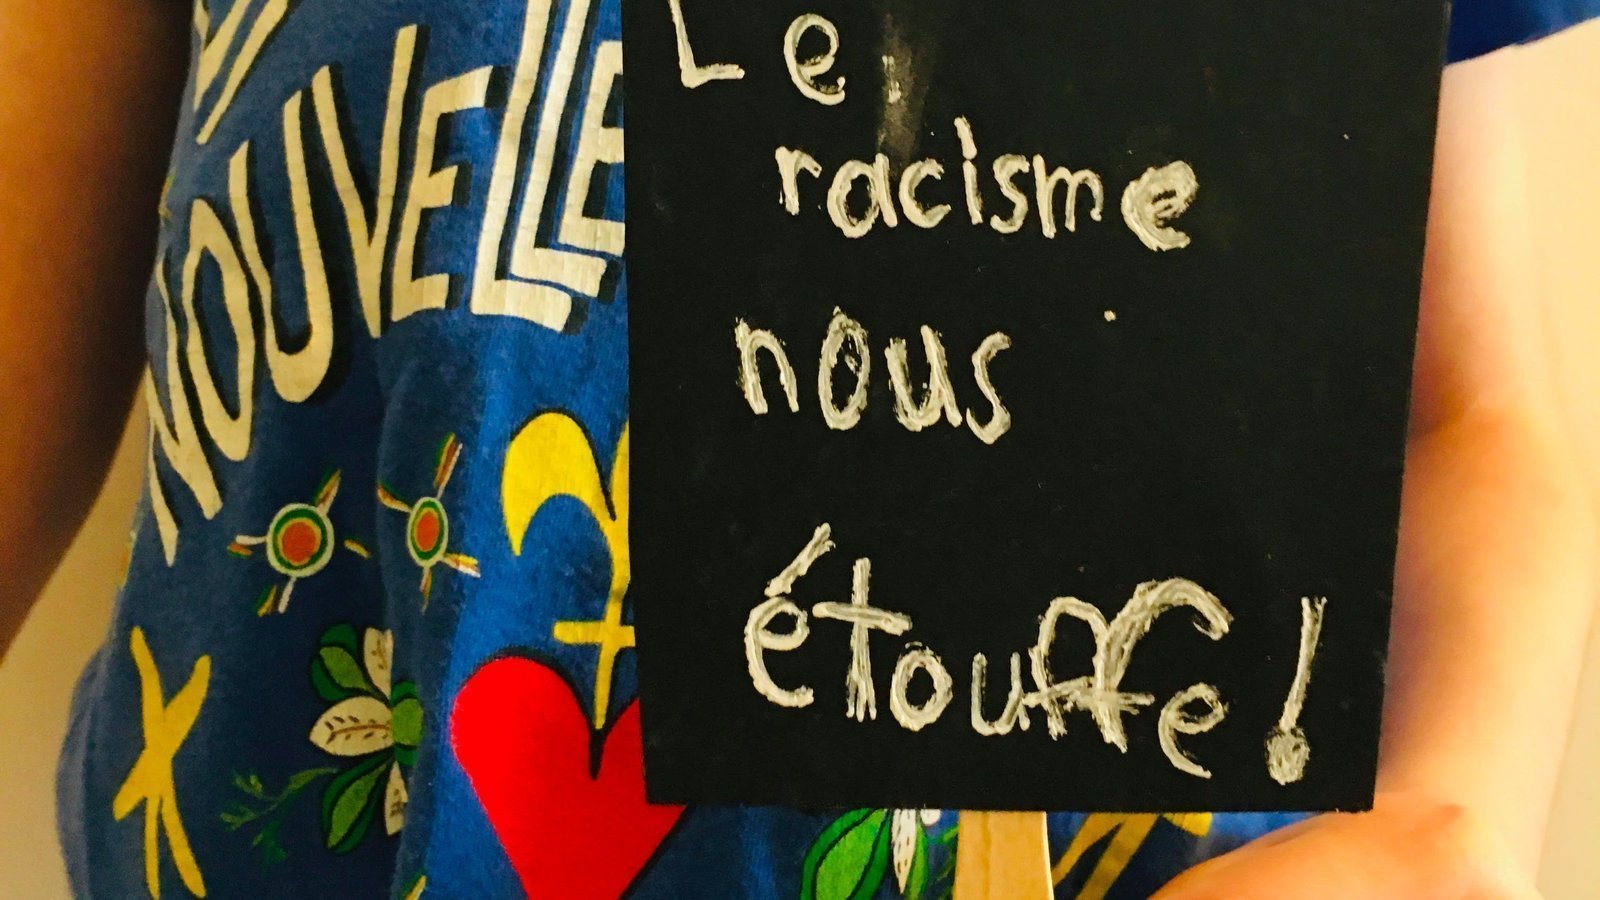 NOUVELLE
Le
racisme
nous
étouffe!